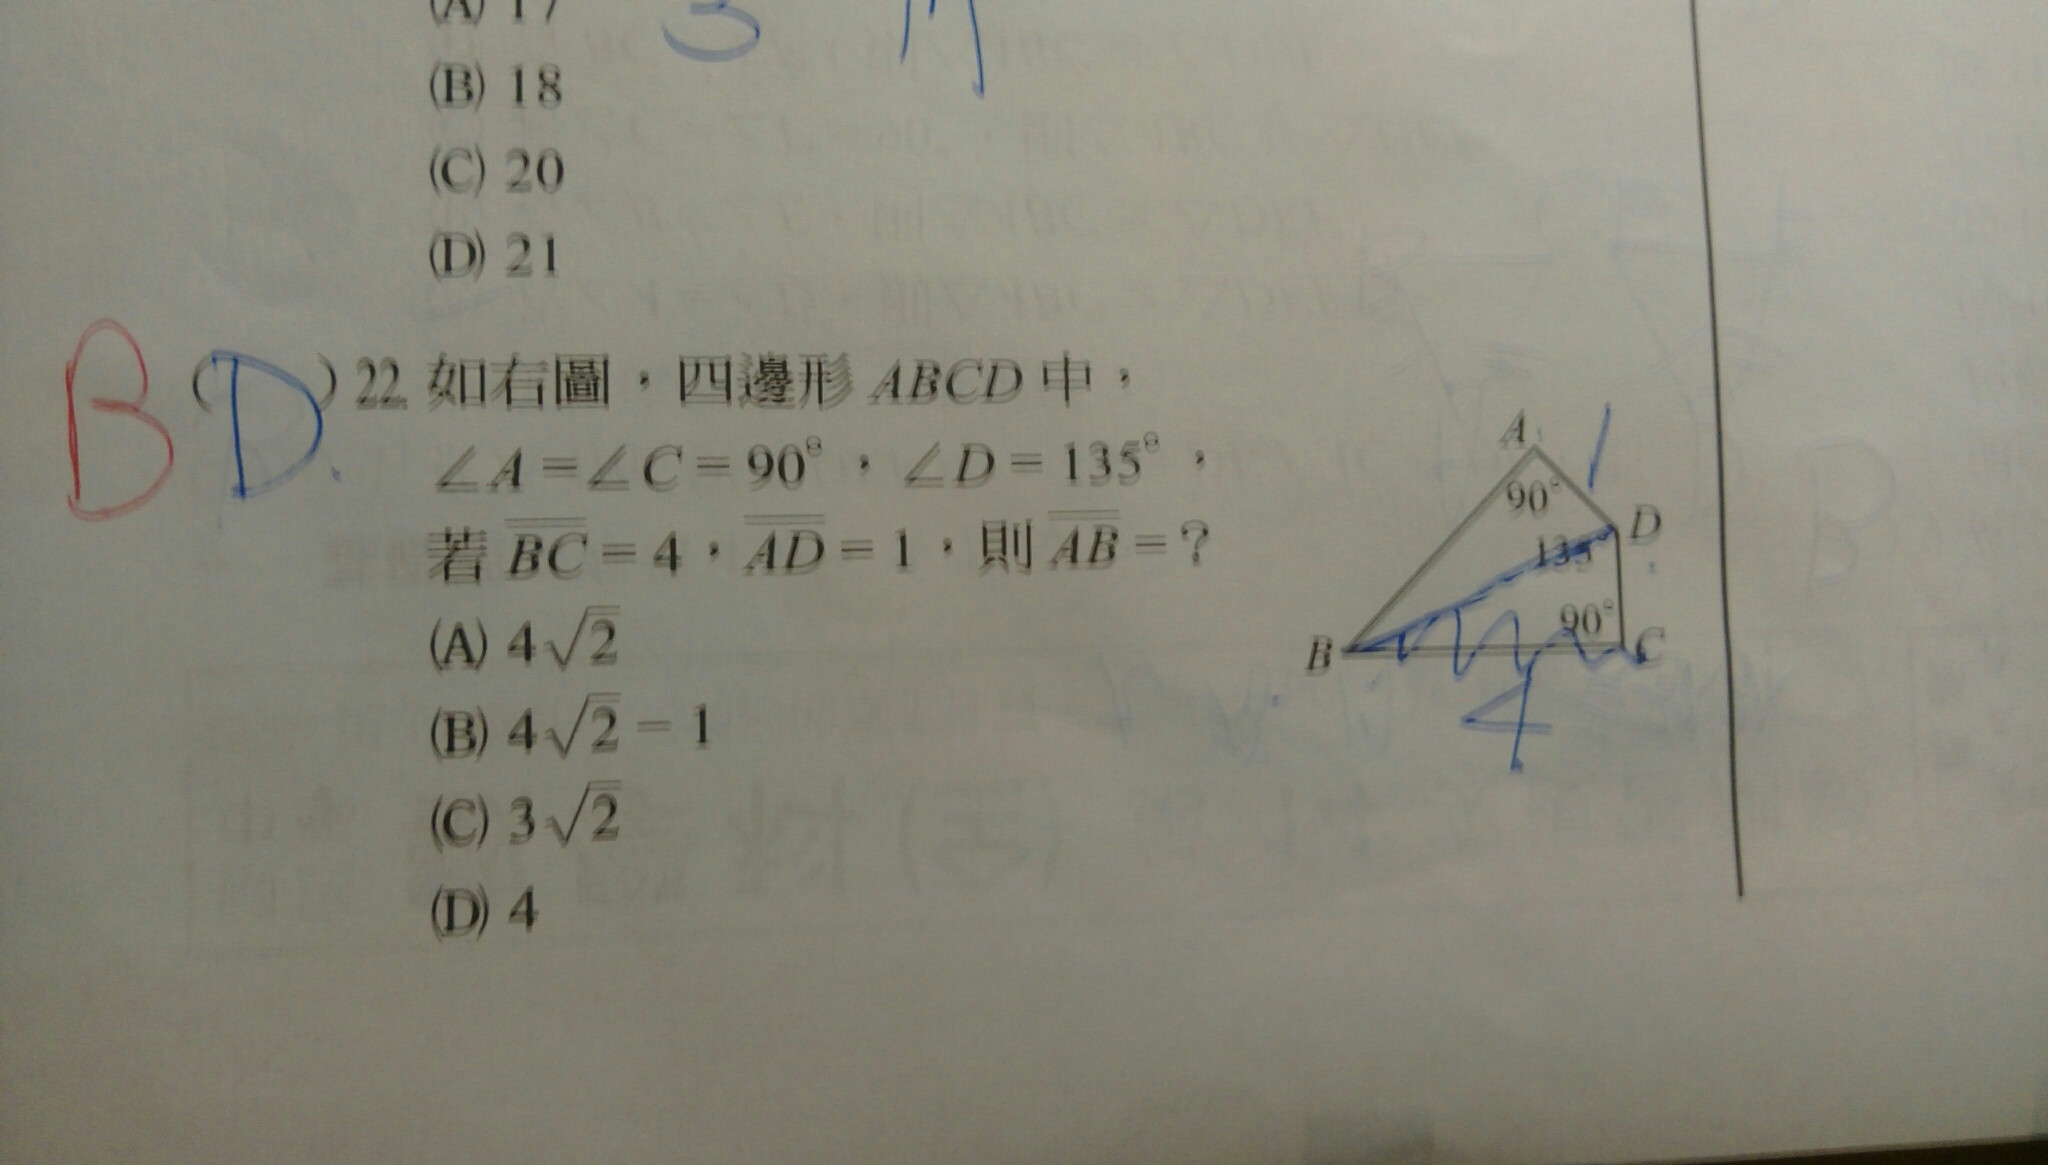 (A) 17
3
(B) 18
(C) 20
(D) 21
B (D) 22. 如右圖，四邊形 ABCD 中，
∠A=∠C=90°，∠D=135°，
若 BC=4，AD=1，則 AB=？
(A) 4√2
(B) 4√2-1
(C) 3√2
(D) 4
A
1
90°
D
135°
90°
B
C
4